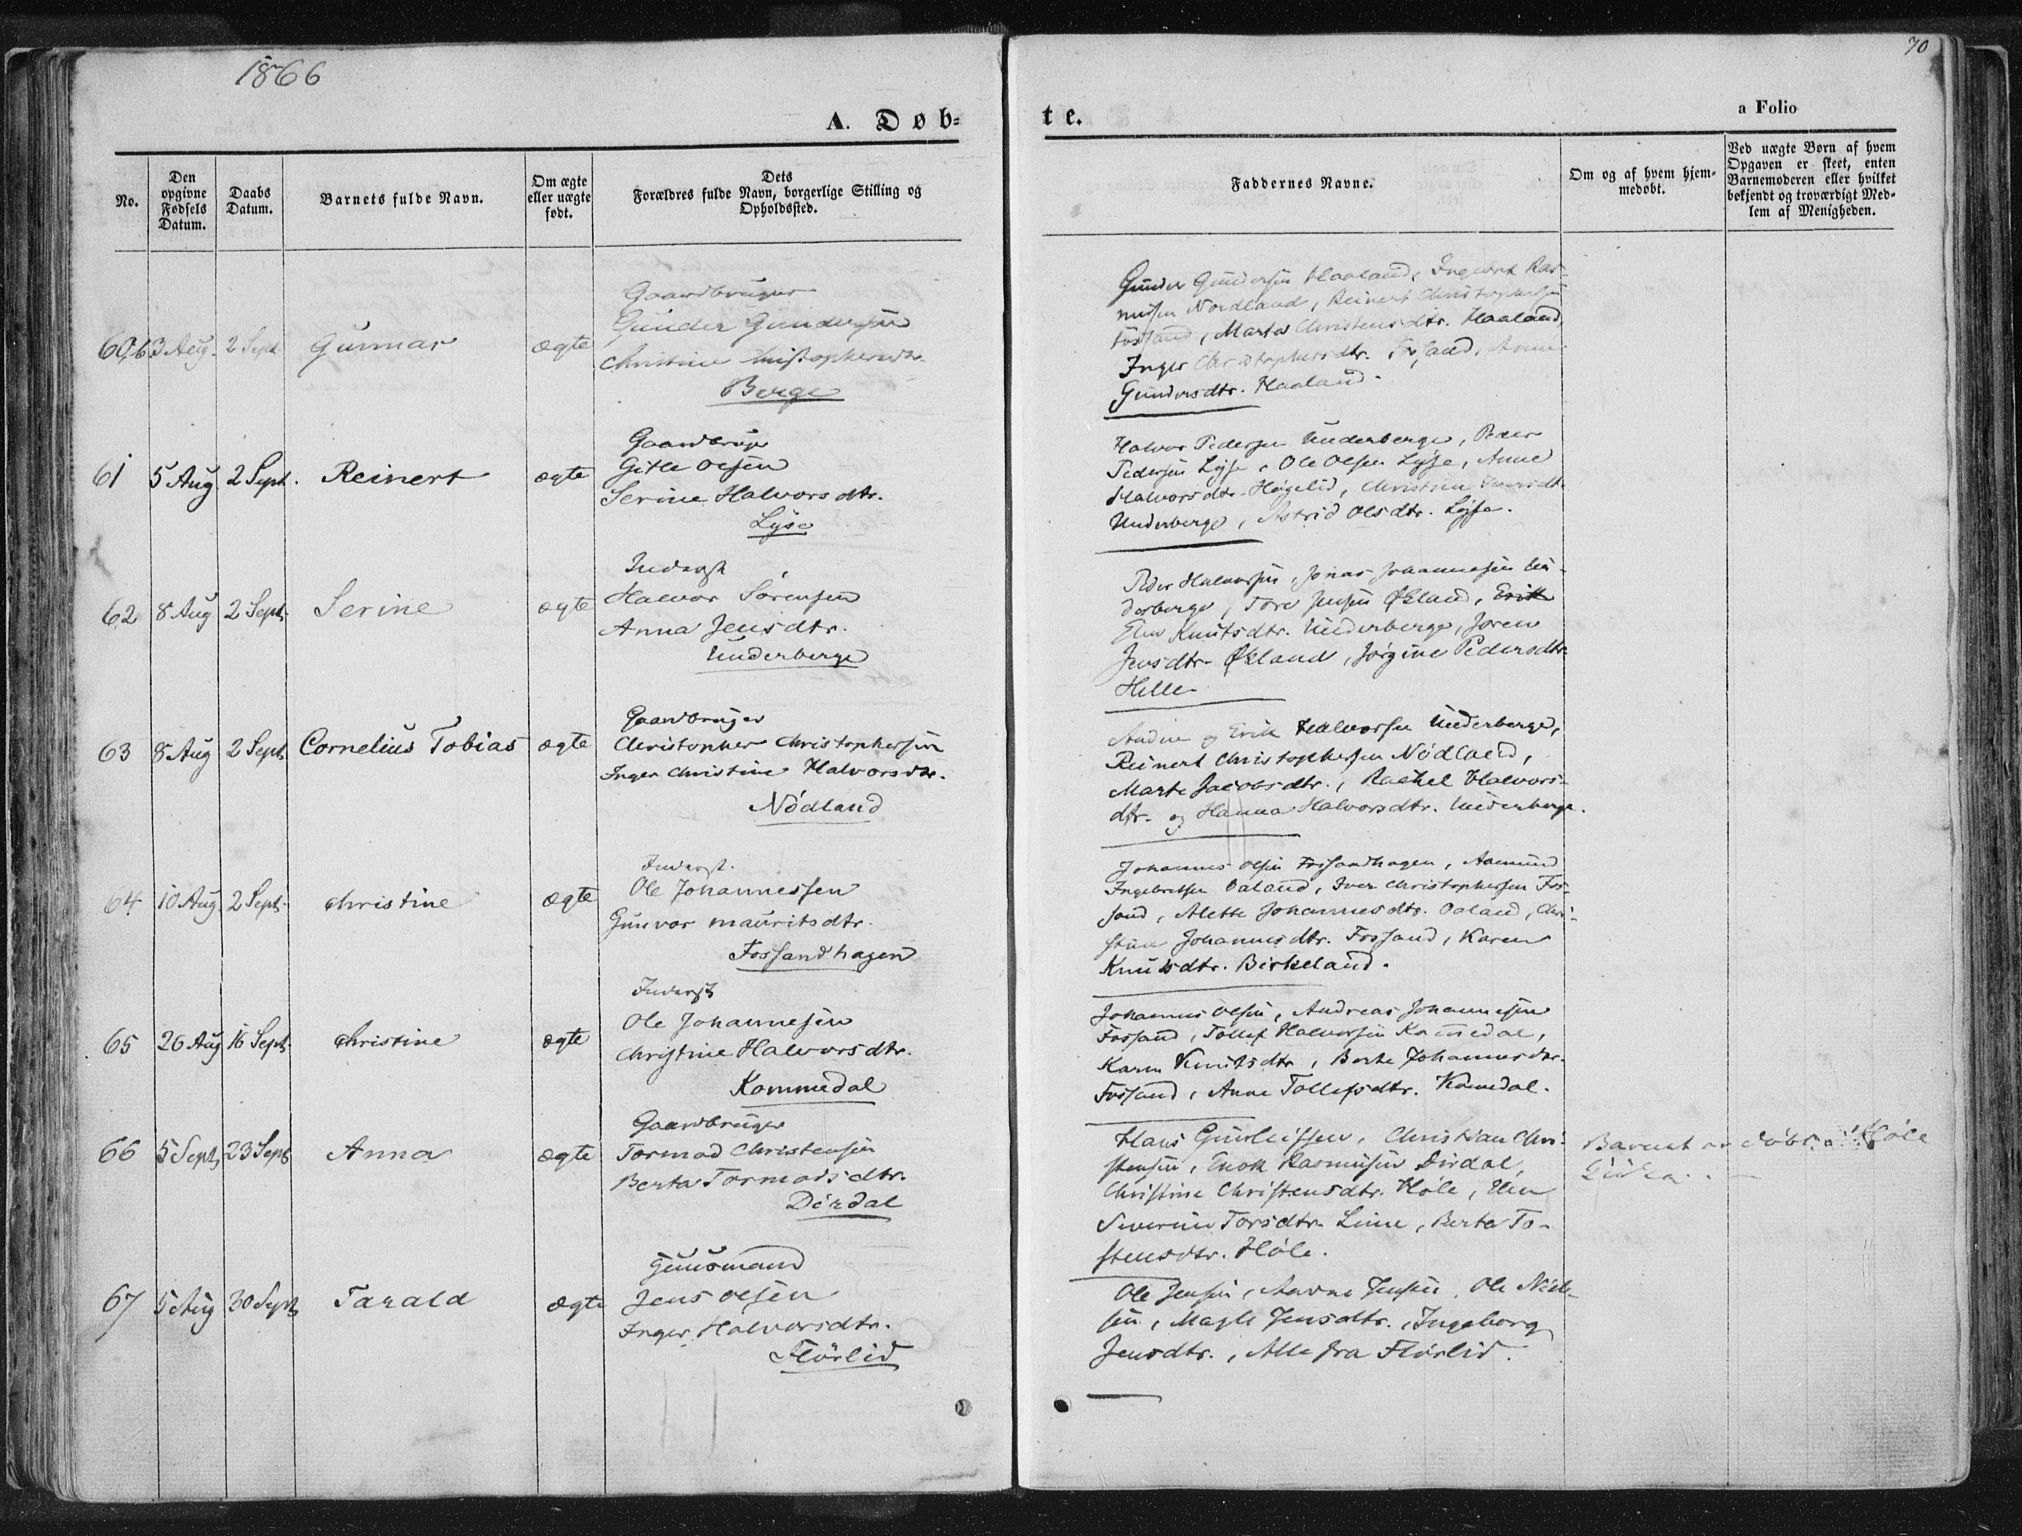 1866
70
A. Døb-
te.
a Folio
No.
Den opgivne Fødsels Datum.
Daabs Datum.
Barnets fulde Navn.
Om ægte eller uægte født.
Dets Forældres fulde Navn, borgerlige Stilling og Opholdssted.
Faddernes Navne.
Om og af hvem hjemmedøbt.
Ved uægte Børn af hvem Opgaven er skeet, enten Barnemoderen eller hvilket bekjendt og troværdigt Medlem af Menigheden.
60 3 Aug. 2 Sept Gunnar ægte
Gaardbruger
Gunder Gundersen
Christine Christophersdtr.
Berge
Gunder Gundersen Haaland, Ingebret Ras-
mussen Nordland, Reinert Christophersen
Fossand, Marta Christensdtr. Haaland,
Inger Christophersdtr. Fossand, Anne
Gundersdtr. Haaland.
61 5 Aug. 2 Sept. Reinert ægte
Gaardbruger
Gitle Olsen
Serine Halvorsdtr.
Lyse
Halvor Pedersen Underberge, Peder
Pedersen Lyse, Ole Olsen Lyse, Anne
Halvorsdtr. Høgelid, Christine
Underberge, Astrid Olsdtr. Lyse.
62 8 Aug 2 Sept. Serine ægte
Inderst
Halvor Sørensen
Anna Jensdtr.
Underberge
Peder Halvorsen, Jonas Johannesen Un-
derberge, Tore Jensen Økland, Erik
Elen Knutsdtr. Underberge, Joren
Jensdtr. Økland, Jørgine Pedersdtr.
Helle.
63 8 Aug 2 Sept. Cornelius Tobias ægte
Gaardbruger
Christopher Christophersen
Inger Christine Halvorsdtr.
Nødland
og Erik Halvorsen Underberge,
Reinert Christophersen Nødland,
Marte Jacobsdtr., Rachel Halvors-
dtr. og Hanna Halvorsdtr. Underberge.
64 10 Aug. 2 Sept. Christine ægte
Inderst.
Ole Johannessen
Gunvor Mauritsdtr.
Fossandhagen
Johannes Olsen Fossandhagen, Aamund
Ingebretsen Oaland, Iver Christophersen Fos-
sand, Alette Johannesdtr. Oaland, Chri-
stine Johannesdtr. Fossand, Karen
Knutsdtr. Birkeland.
65 26 Aug 16 Sept. Christine ægte
Inderst
Ole Johannesen
Christine Halvorsdtr.
Kommedal
Johannes Olsen, Andreas Johannesen
Fossand, Tollef Halvorsen Komedal,
Karen Knutsdtr, Berte Johannesdtr.
Fossand, Anne Tollefsdtr. Komedal.
66 5 Sept. 23 Sept Anna ægte
Gaardbruger
Tormod Christensen
Berta Tormodsdtr.
Dirdal
Hans Gunleiksen, Christian Chri-
stensen, Enok Rasmusen Dirdal,
Christine Christensdtr. Høle, Elen
Severine Torsdtr. Lime, Berta To-
stensdtr. Høle.
Barnet er døbt i Høle
Kirke.
67 5 Aug 30 Sept Tarald ægte
Huusmand
Jens Olsen
Inger Halvorsdtr.
Flørlid
Ole Jensen, Aanen Jensen, Ole Niel-
sen, Magle Jensdtr., Ingeborg
Jensdtr., Alle fra Flørlid.